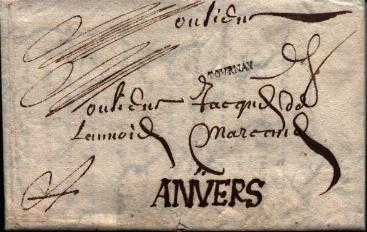 Monsieur
TOURNAY
Monsieur Jacques de
Lannoy Marcand
ANVERS